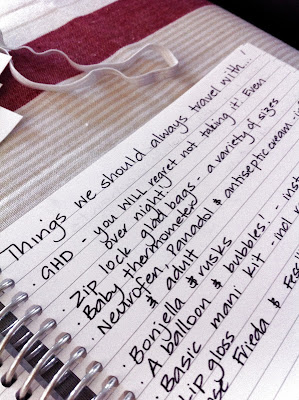 Things we should always travel with..!
. GHD - you WILL regret not taking it! Even
over night.
. Zip lock / glad bags - a variety of sizes
. Baby thermometer
. Neurofen, Panadol & antiseptic cream -
& adult
. Bonjella & rusks
. A balloon & bubbles! - inst
. Basic mani kit - incl.
. Lip gloss
Frieda &